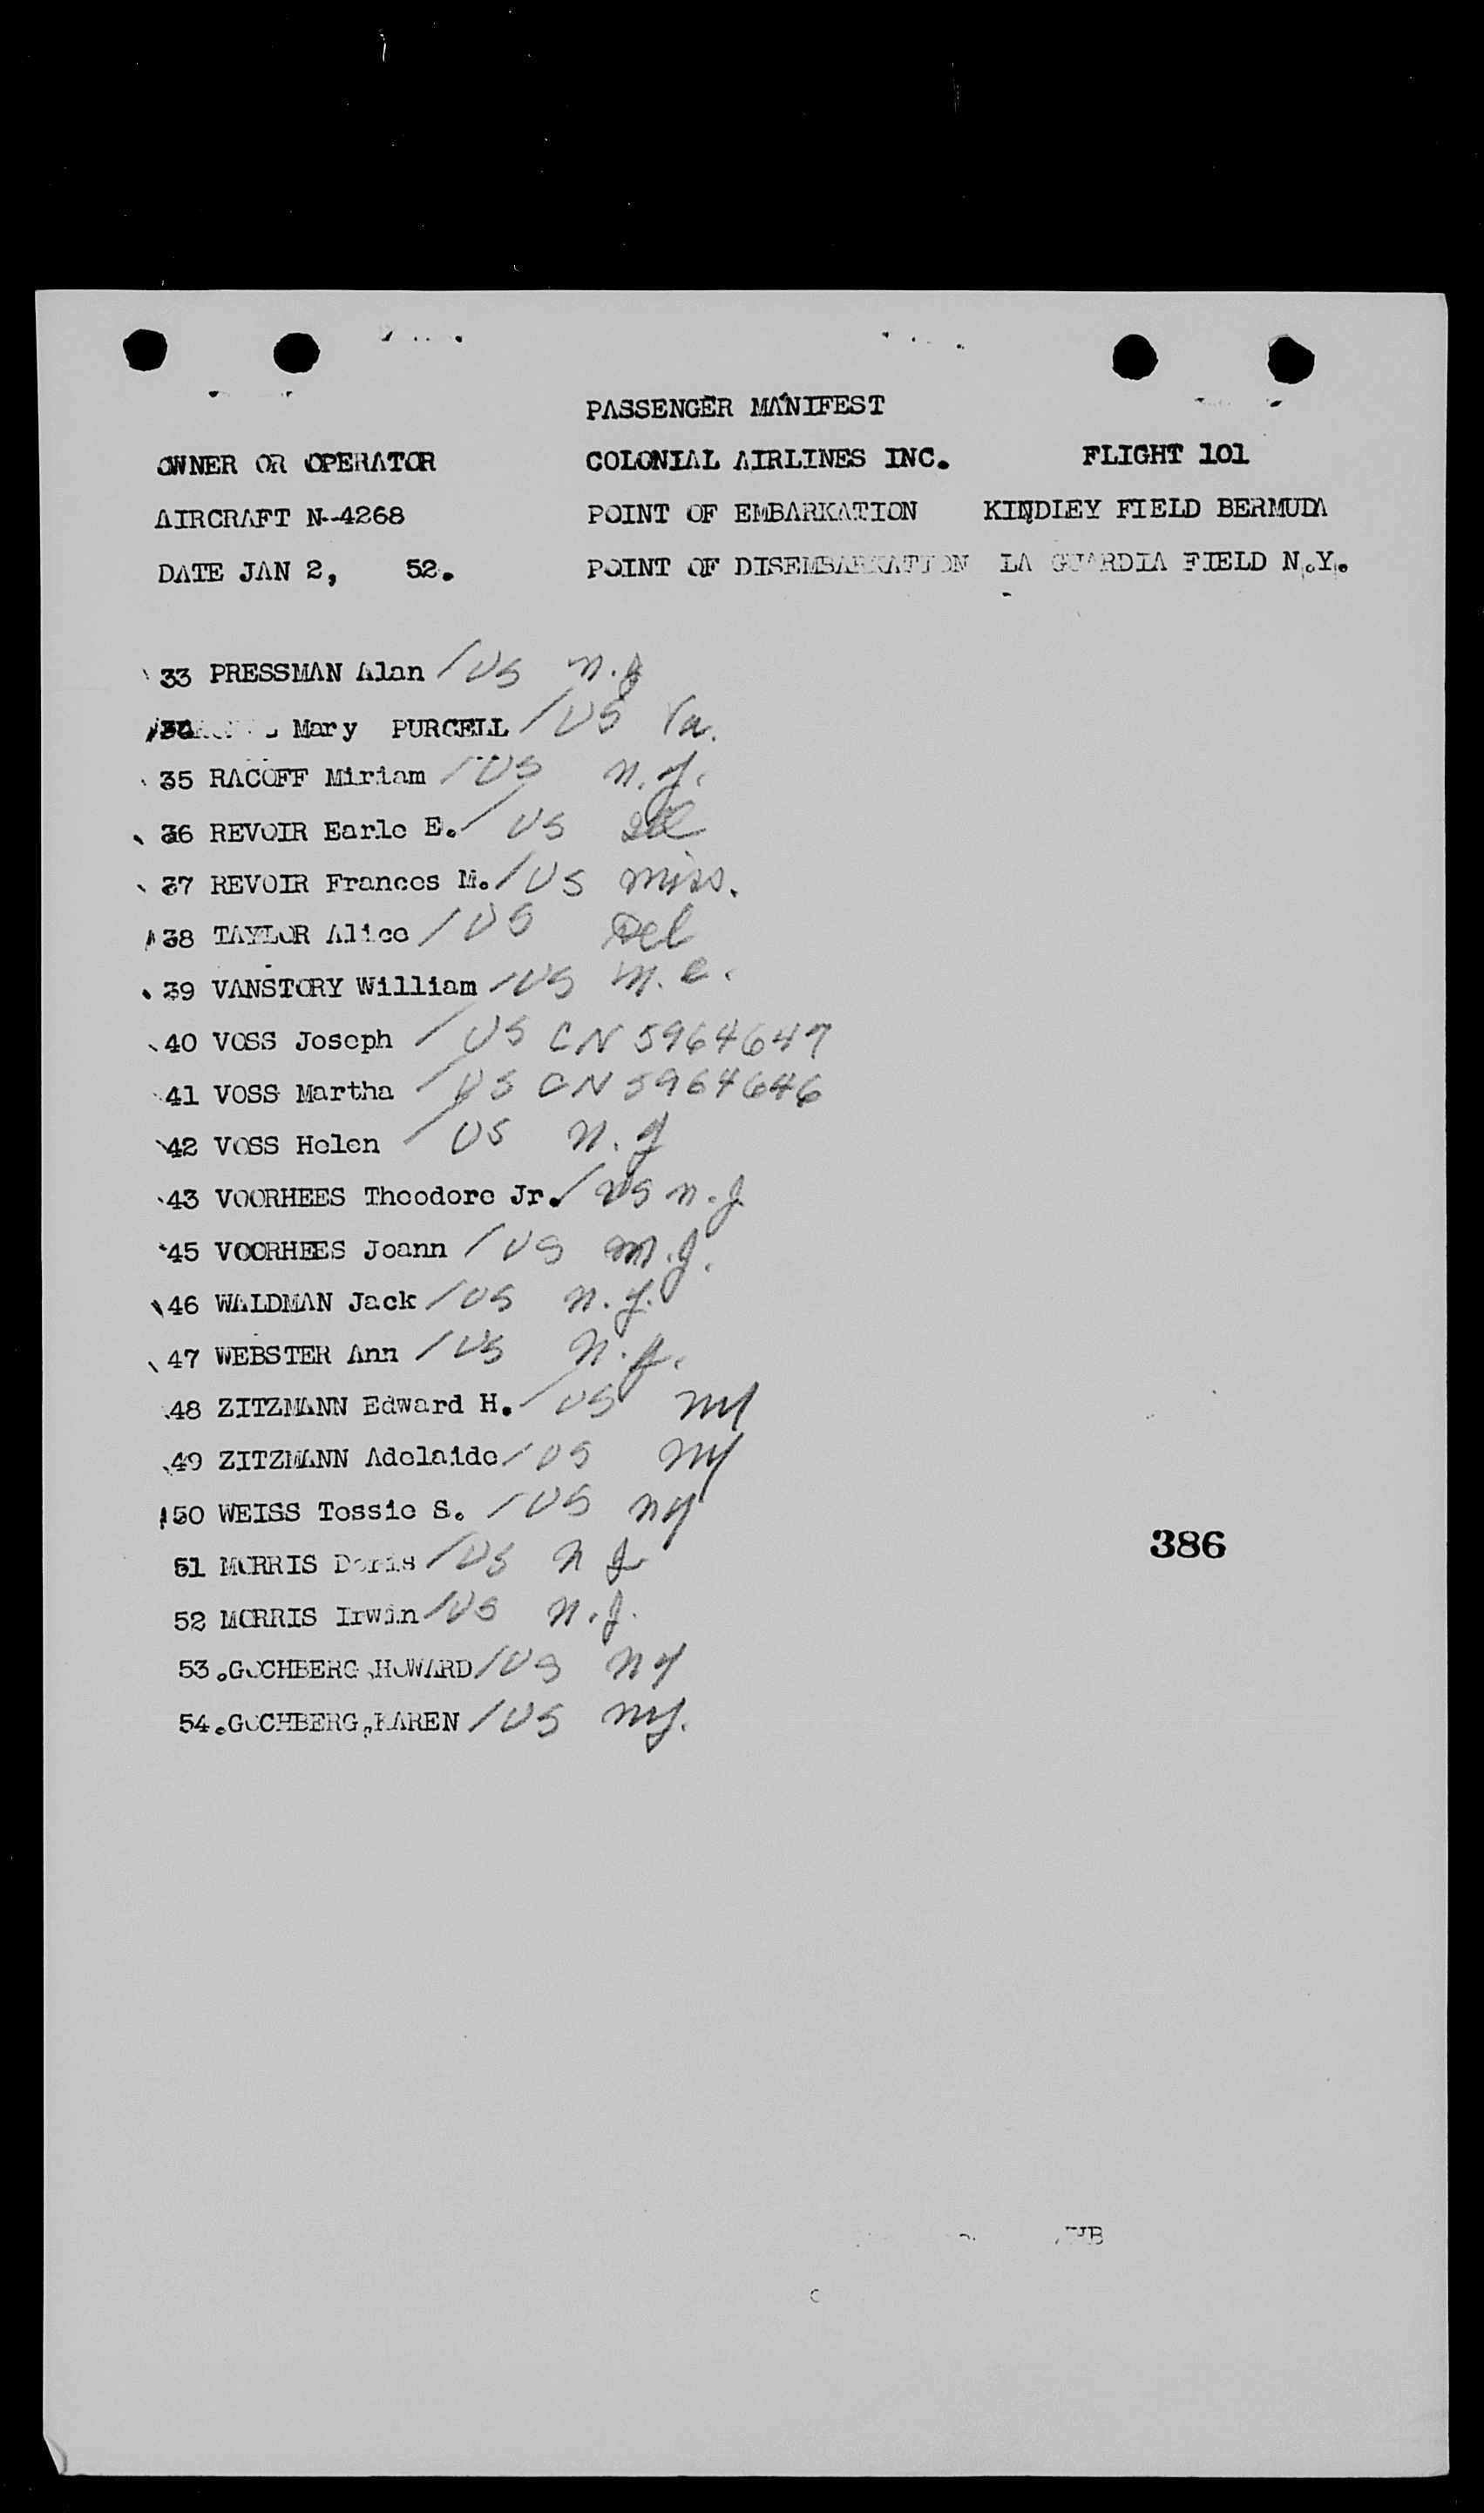 PASSENGER MANIFEST
OWNER OR OPERATOR COLONIAL AIRLINES INC. FLIGHT 101
AIRCRAFT N-4268 POINT OF EMBARKATION KINDLEY FIELD BERMUDA
DATE JAN 2, 52. POINT OF DISEMBARKATION LA GUARDIA FIELD N.Y.
33 PRESSMAN Alan /US N.J
34 Mary PURCELL /US Va.
35 RACOFF Miriam /US N.J.
36 REVOIR Earle E. /US Ill
37 REVOIR Frances M. /US Miss.
38 TAYLOR Alice /US Del
39 VANSTORY William /US N.C.
40 VOSS Joseph /US CN 5964647
41 VOSS Martha /US CN 5964646
42 VOSS Helen /US N.J
43 VOORHEES Theodore Jr. /US N.J
45 VOORHEES Joann /US N.J.
46 WALDMAN Jack /US N.Y.
47 WEBSTER Ann /US N.J.
48 ZITZMANN Edward H. /US NY
49 ZITZMANN Adelaide /US NY
50 WEISS Tessie S. /US NY
51 MORRIS Doris /US N J
52 MORRIS Irwin /US N.J.
53.GOCHBERG,HOWARD /US NY
54.GOCHBERG,KAREN /US NY.
386